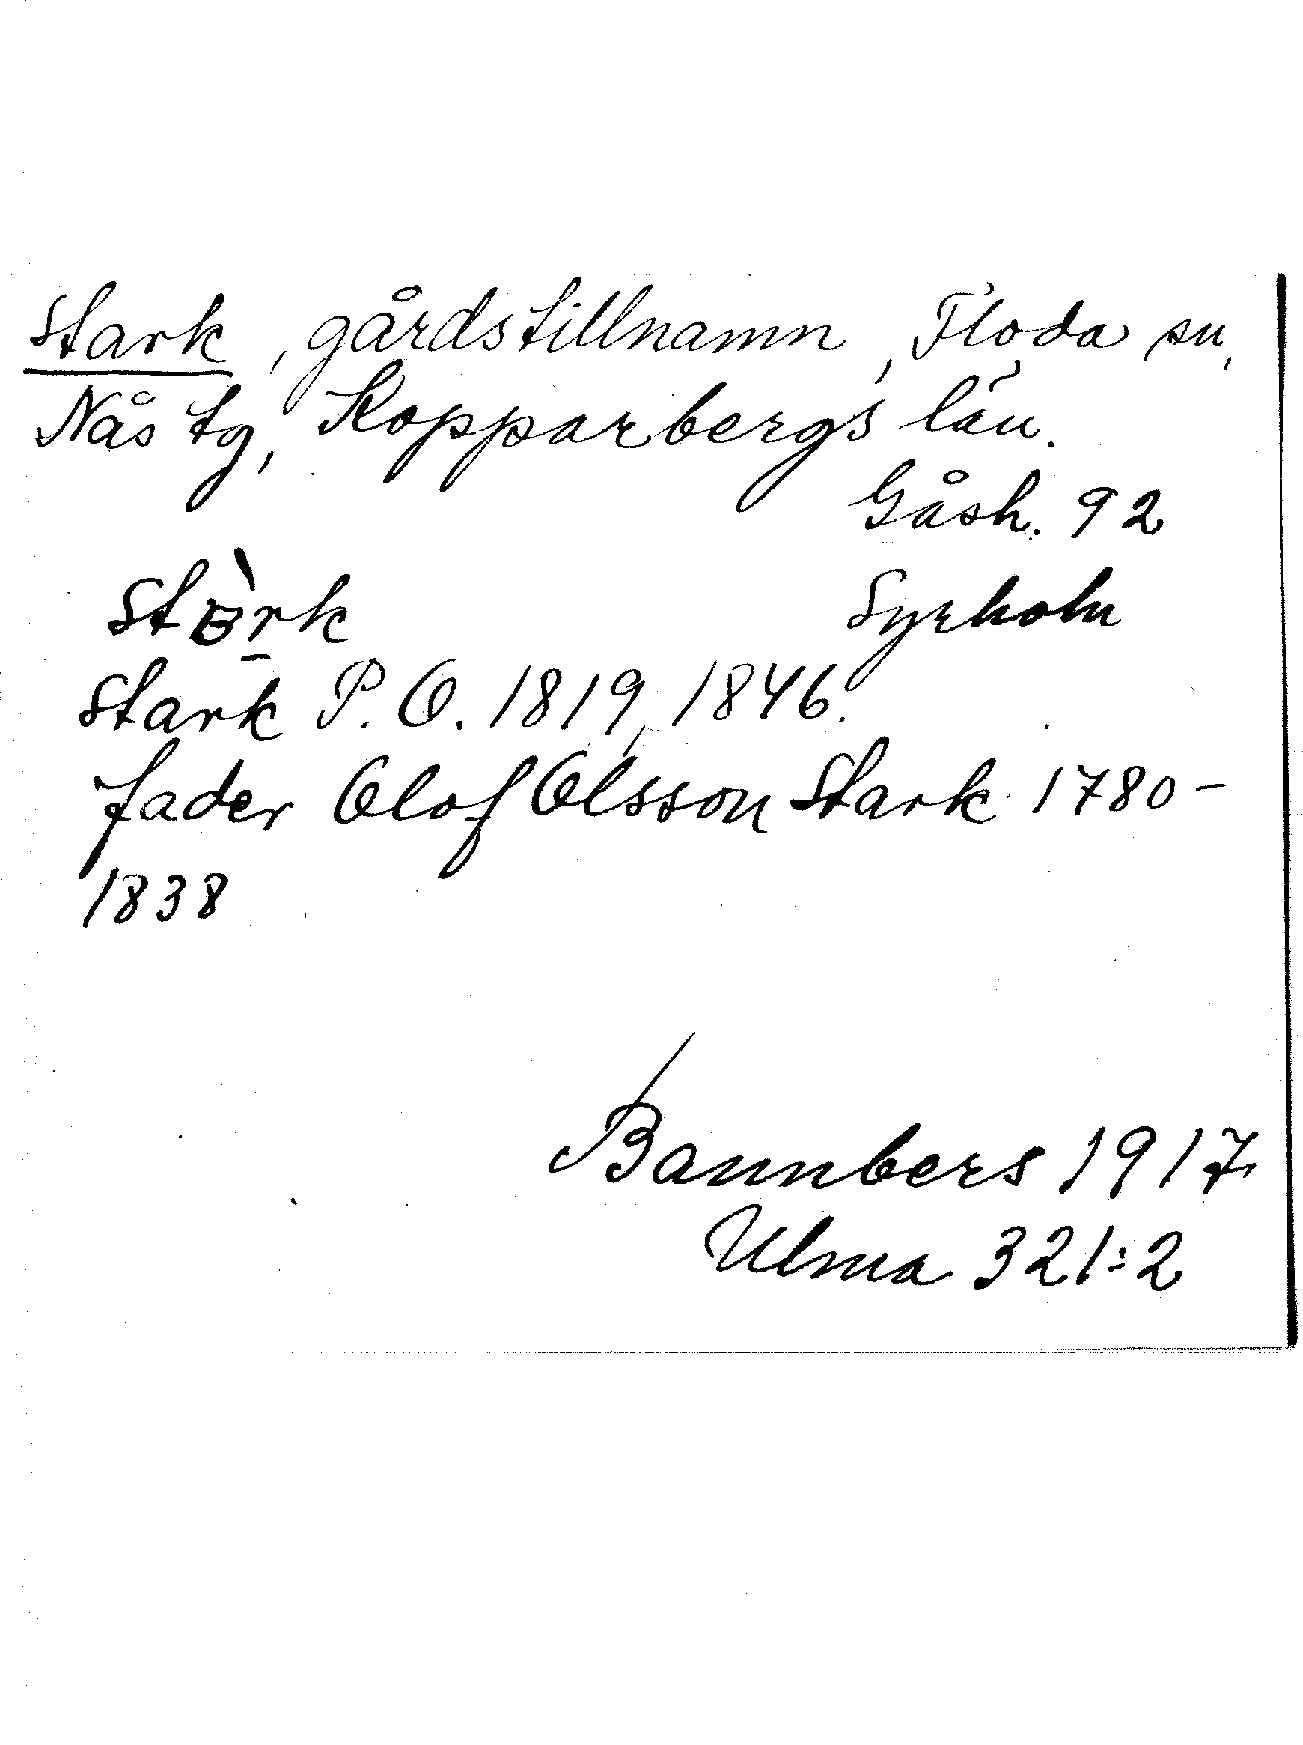 Stark, gårdstillnamn, Floda sn,
Nås tg, Kopparbergs län.
Gåsh. 92
Syrholn
Stark P. O. 1819, 1846.
fader Olof Olsson Stark 1780-
1838
Bannbers 1917
Ulma 321:2